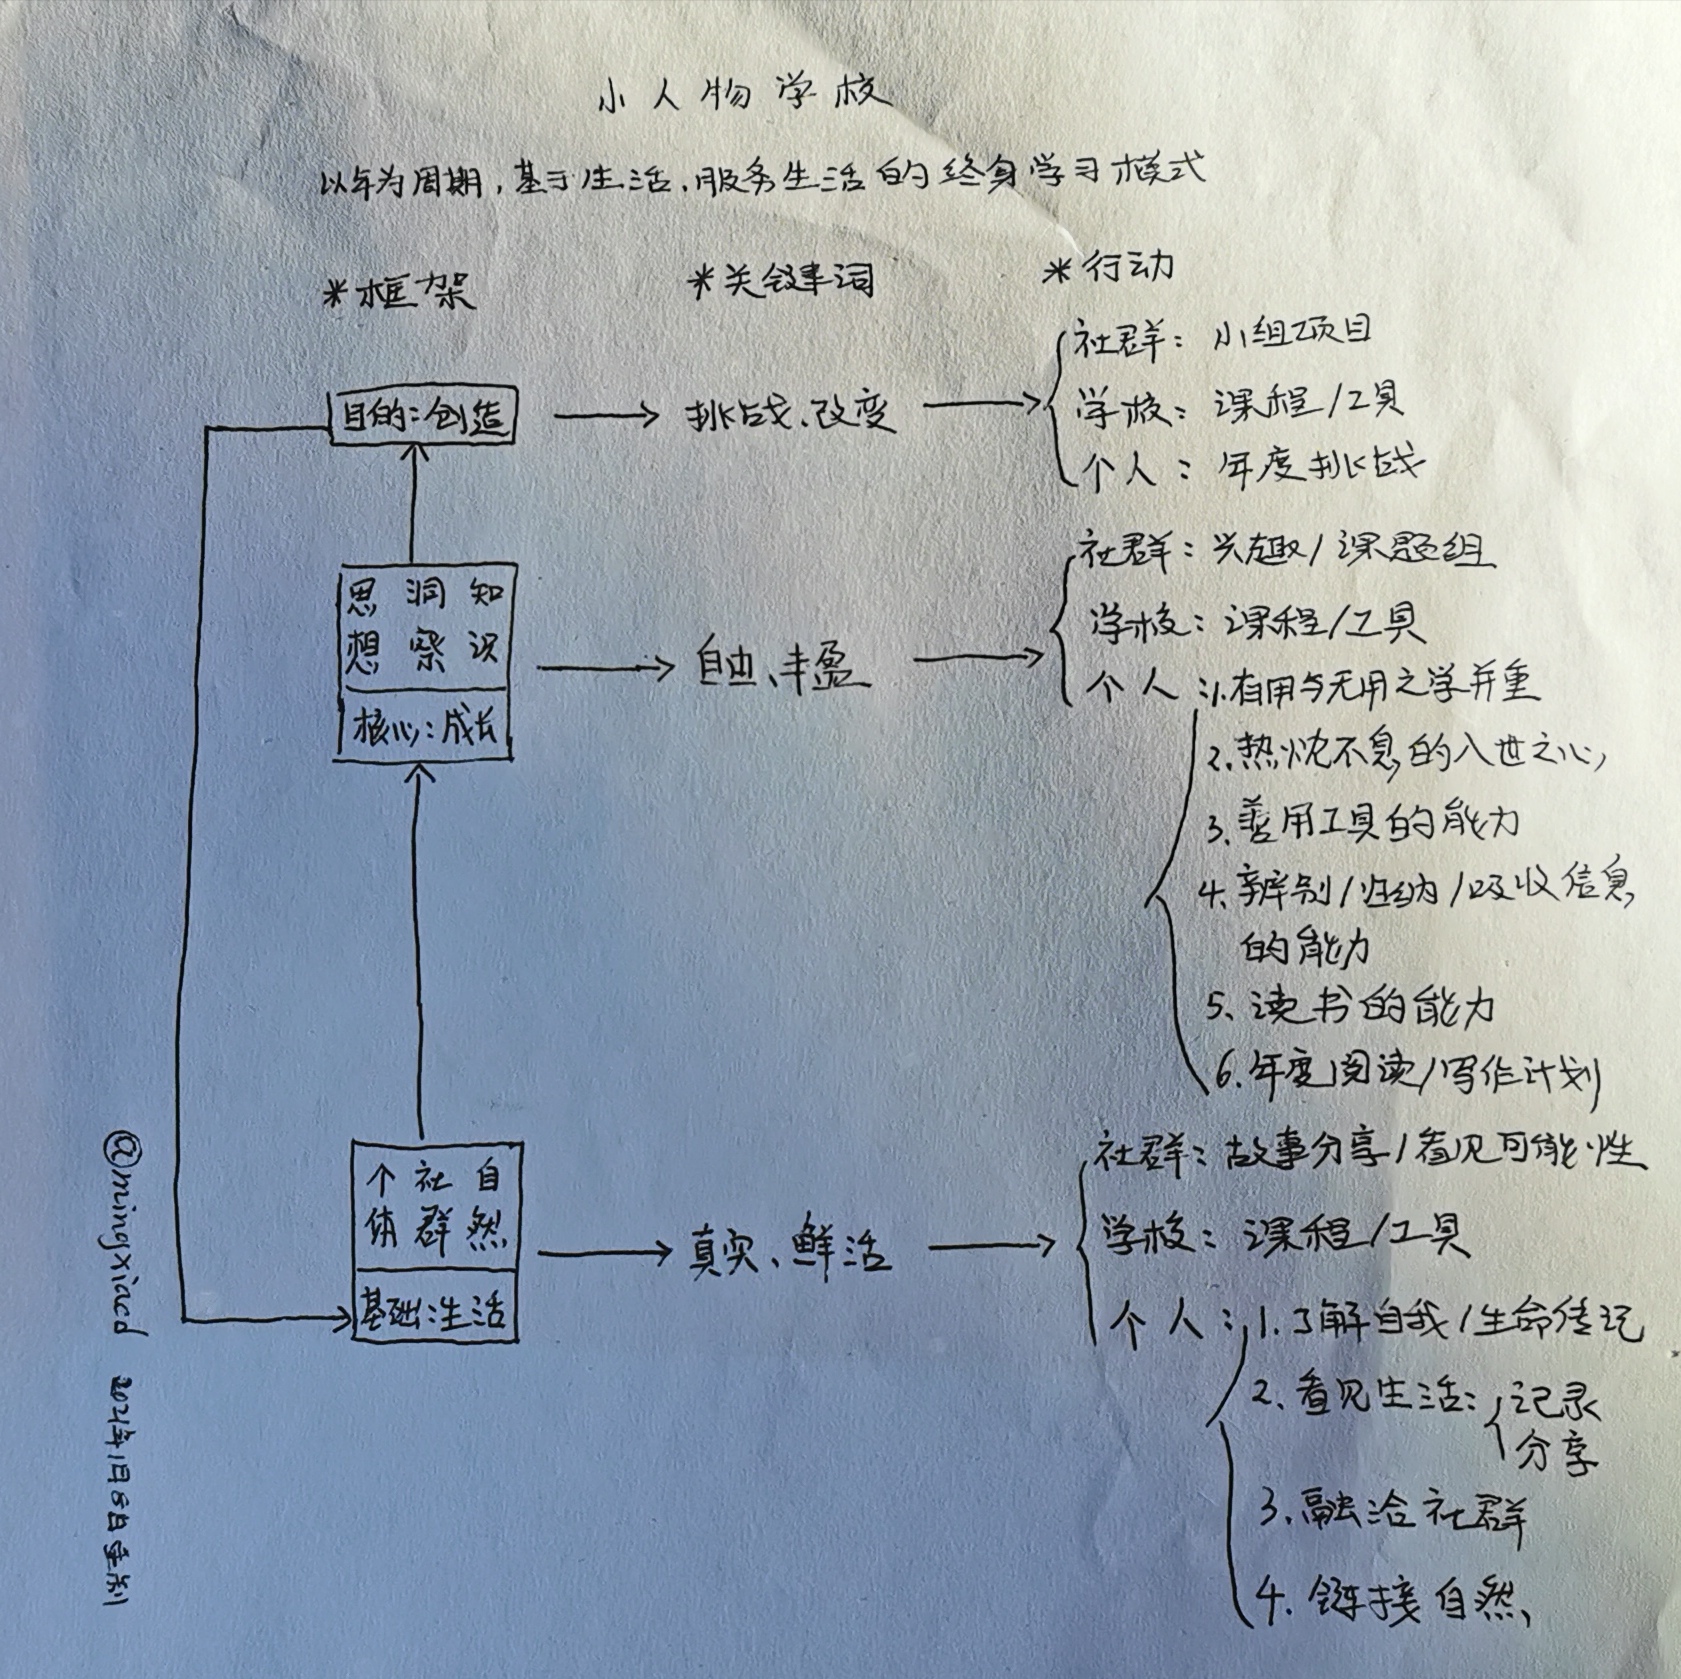 小人物学校
以年为周期,基于生活、服务生活的终身学习模式
*框架
*关键词
*行动
目的:创造
挑战、改变
社群:小组项目
学校:课程/工具
个人:年度挑战
思想 洞察 知识
核心:成长
自由、丰盈
社群:兴趣/课题组
学校:课程/工具
个人:1.有用与无用之学并重
2.热忱不息的入世之心,
3.善用工具的能力
4.辨别/归纳/吸收信息
的能力
5、读书的能力
6.年度阅读/写作计划
个体 社群 自然
基础:生活
真实、鲜活
社群:故事分享/看见可能性
学校:课程/工具
个人:1.了解自我/生命传记
2、看见生活:记录
分享
3.融洽社群
4.链接自然、
@mingxiacd
2021年1月8日